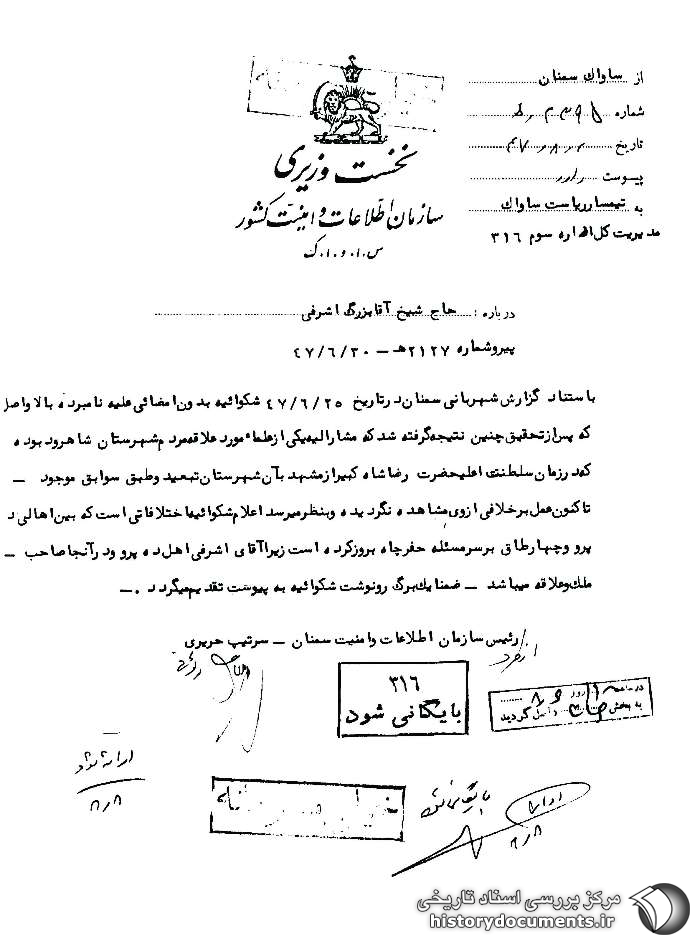 از ساواک سمنان
شماره
تاریخ
پیوست دارد
به تیمسار ریاست ساواک
مدیریت کل اداره سوم ۳۱۶
نخست وزیری
سازمان اطلاعات و امنیت کشور
س.ا.و.ا.ک
درباره : حاج شیخ آقابزرگ اشرفی
پیرو شماره ۲۱۲۷هـ – ۴۷/۶/۳۰
باستناد گزارش شهربانی سمنان در تاریخ ۴۷/۶/۲۵ شکوائیه بدون امضائی علیه نامبرده بالا واصل
که پس از تحقیق چنین نتیجه گرفته شد که مشارالیه یکی از علماء مورد علاقه مردم شهرستان شاهرود بوده
که در زمان سلطنت اعلیحضرت رضاشاه کبیر از مشهد بآن شهرستان تبعید و طبق سوابق موجود –
تاکنون عمل برخلافی از وی مشاهده نگردیده و بنظر میرسد اعلام شکوائیه اختلافاتی است که بین اهالی د
پرو و چهارطاق بر سر مسئله حفر چاه بروز کرده است زیرا آقای اشرفی اهل ده پرو و در آنجا صاحب –
ملک و علاقه میباشد – ضمنا یک برگ رونوشت شکوائیه به پیوست تقدیم میگردد .–
رئیس سازمان اطلاعات و امنیت سمنان – سرتیپ حریری
۳۱۶
بایگانی شود
روز
به بخش
گردید
ارائه شد
۸/۸
بایگانی شود
۸/۸
مرکز بررسی اسناد تاریخی
historydocuments.ir